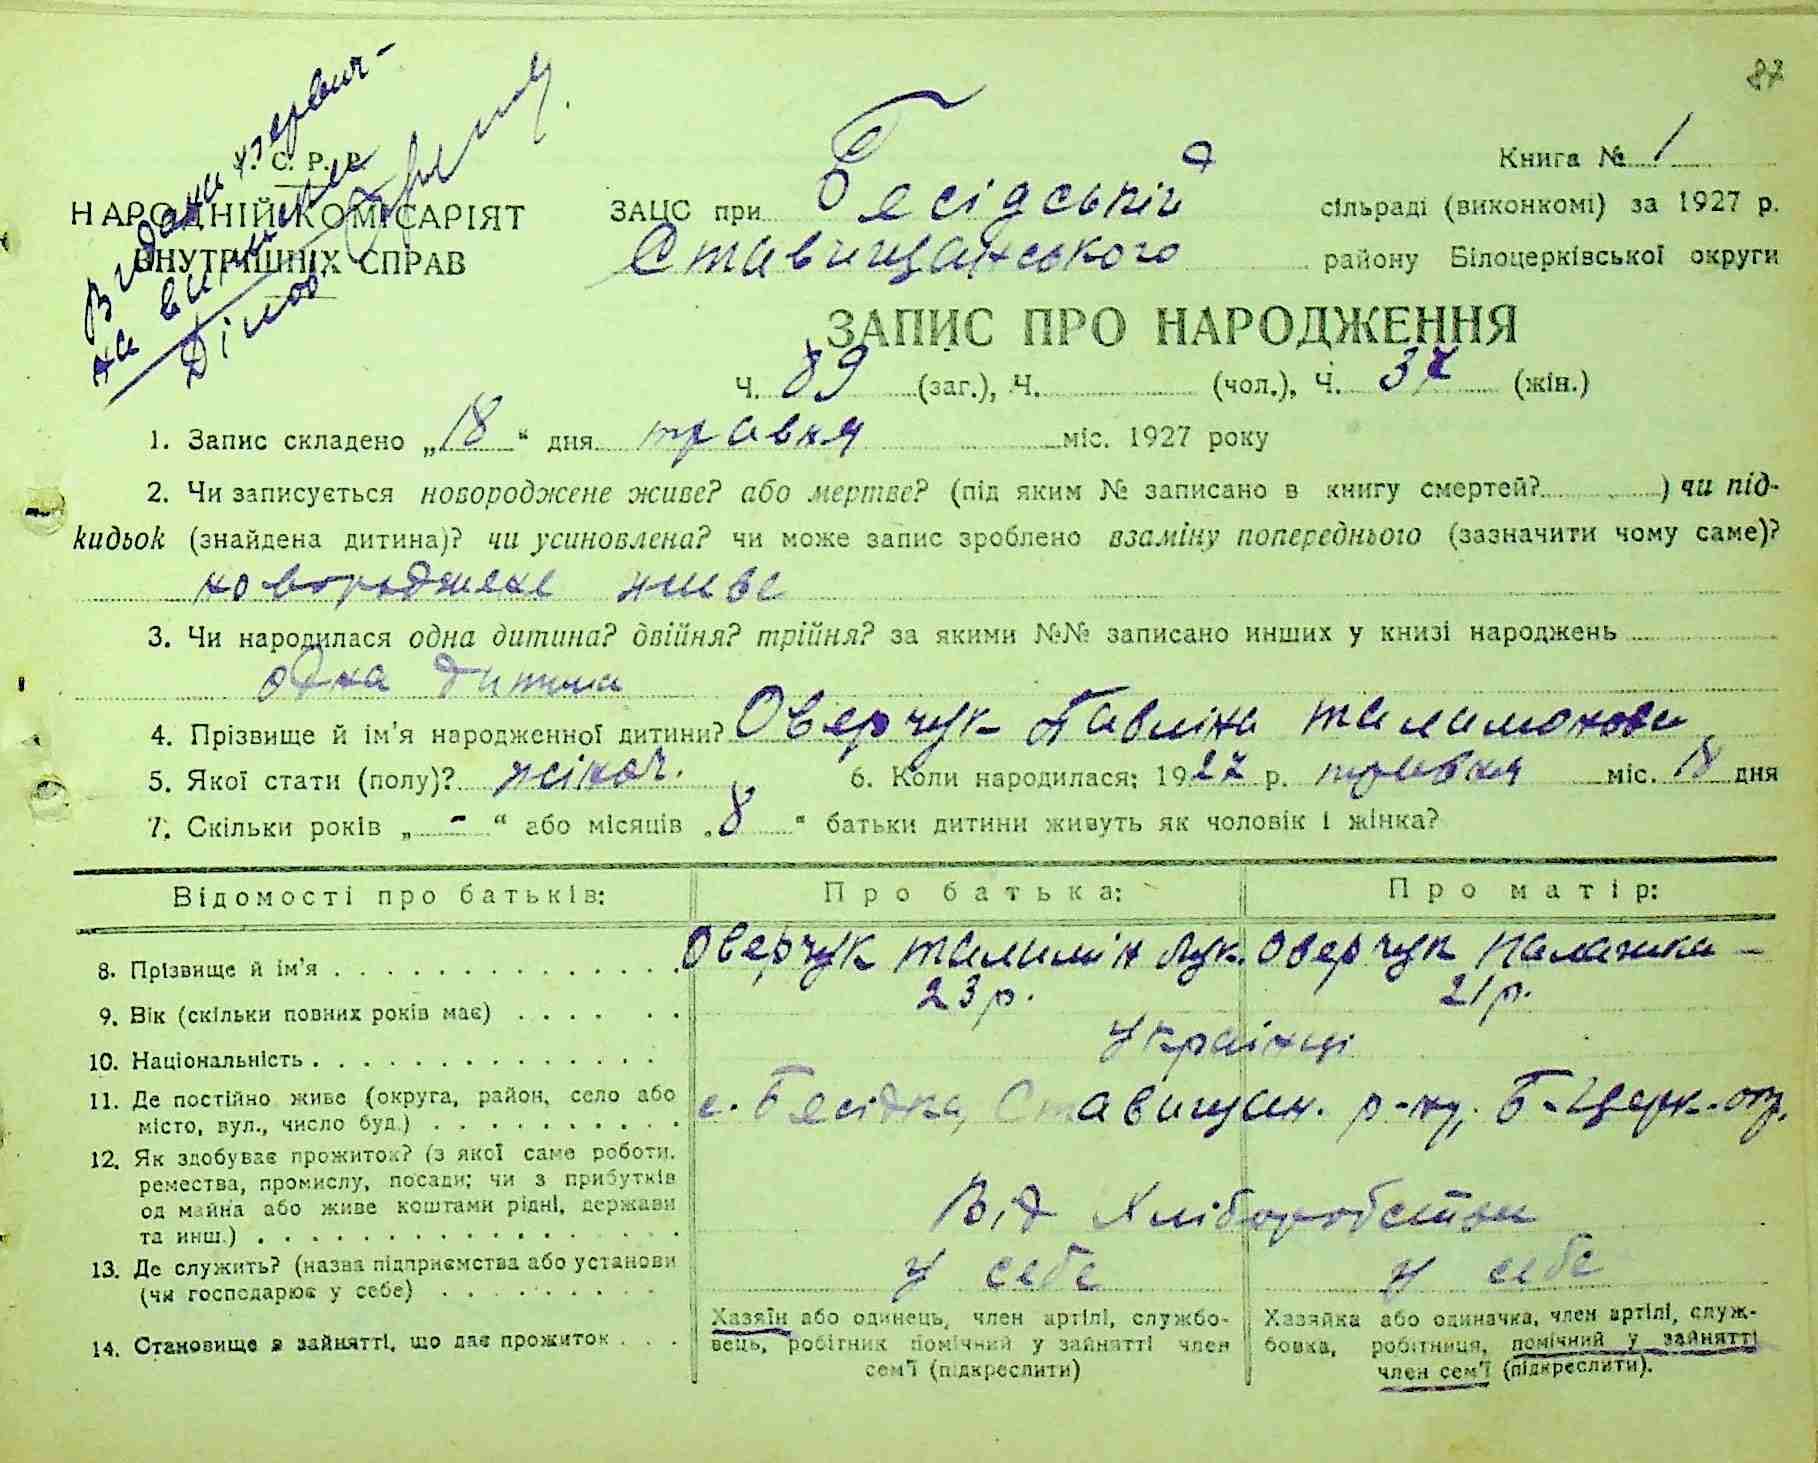 87
Видана первич-
на виписка
С. Р. Р.
НАРОДНІЙ КОМІСАРІЯТ
ВНУТРІШНІХ СПРАВ
Книга № 1
ЗАЦС при Бесідській сільраді (виконкомі) за 1927 р.
Ставищанського району Білоцерківської округи
ЗАПИС ПРО НАРОДЖЕННЯ
Ч. 89 (заг.), Ч. (чол.), Ч. 37 (жін.)
1. Запис складено „18“ дня травня міс. 1927 року
2. Чи записується новороджене живе? або мертве? (під яким № записано в книгу смертей? ) чи під-
кидьок (знайдена дитина)? чи усиновлена? чи може запис зроблено взаміну попереднього (зазначити чому саме)?
новороджене живе
3. Чи народилася одна дитина? двійня? трійня? за якими №№ записано инших у книзі народжень
одна дитина
4. Прізвище й ім'я народженної дитини? Оверчук Павліна талимонова
5. Якої стати (полу)? жіноч. 6. Коли народилася: 1927 р. травня міс. 18 дня
7. Скільки років „ - “ або місяців „8“ батьки дитини живуть як чоловік і жінка?
Відомості про батьків: Про батька: Про матір:
8. Прізвище й ім'я . . . . Оверчук талимін Лук. Оверчук Палажка –
9. Вік (скільки повних років має) . . . . 23 р. 21 р.
10. Національність . . . . Українці
11. Де постійно живе (округа, район, село або
місто, вул., число буд.) . . . . с. Бесідка, Ставищан. р-ну, Б-Церк. окр.
12. Як здобуває прожиток? (з якої саме роботи,
ремества, промислу, посади; чи з прибутків
од майна або живе коштами рідні, держави
та инш.) . . . . Від хліборобства
13. Де служить? (назва підприємства або установи
(чи господарює у себе) . . . . у себе у себе
14. Становище в зайнятті, що дає прожиток . . .
Хазяїн або одинець, член артілі, службо-
вець, робітник помічний у зайнятті член
сем'ї (підкреслити)
Хазяйка або одиначка, член артілі, служ-
бовка, робітниця, помічний у зайнятті
член сем'ї (підкреслити).